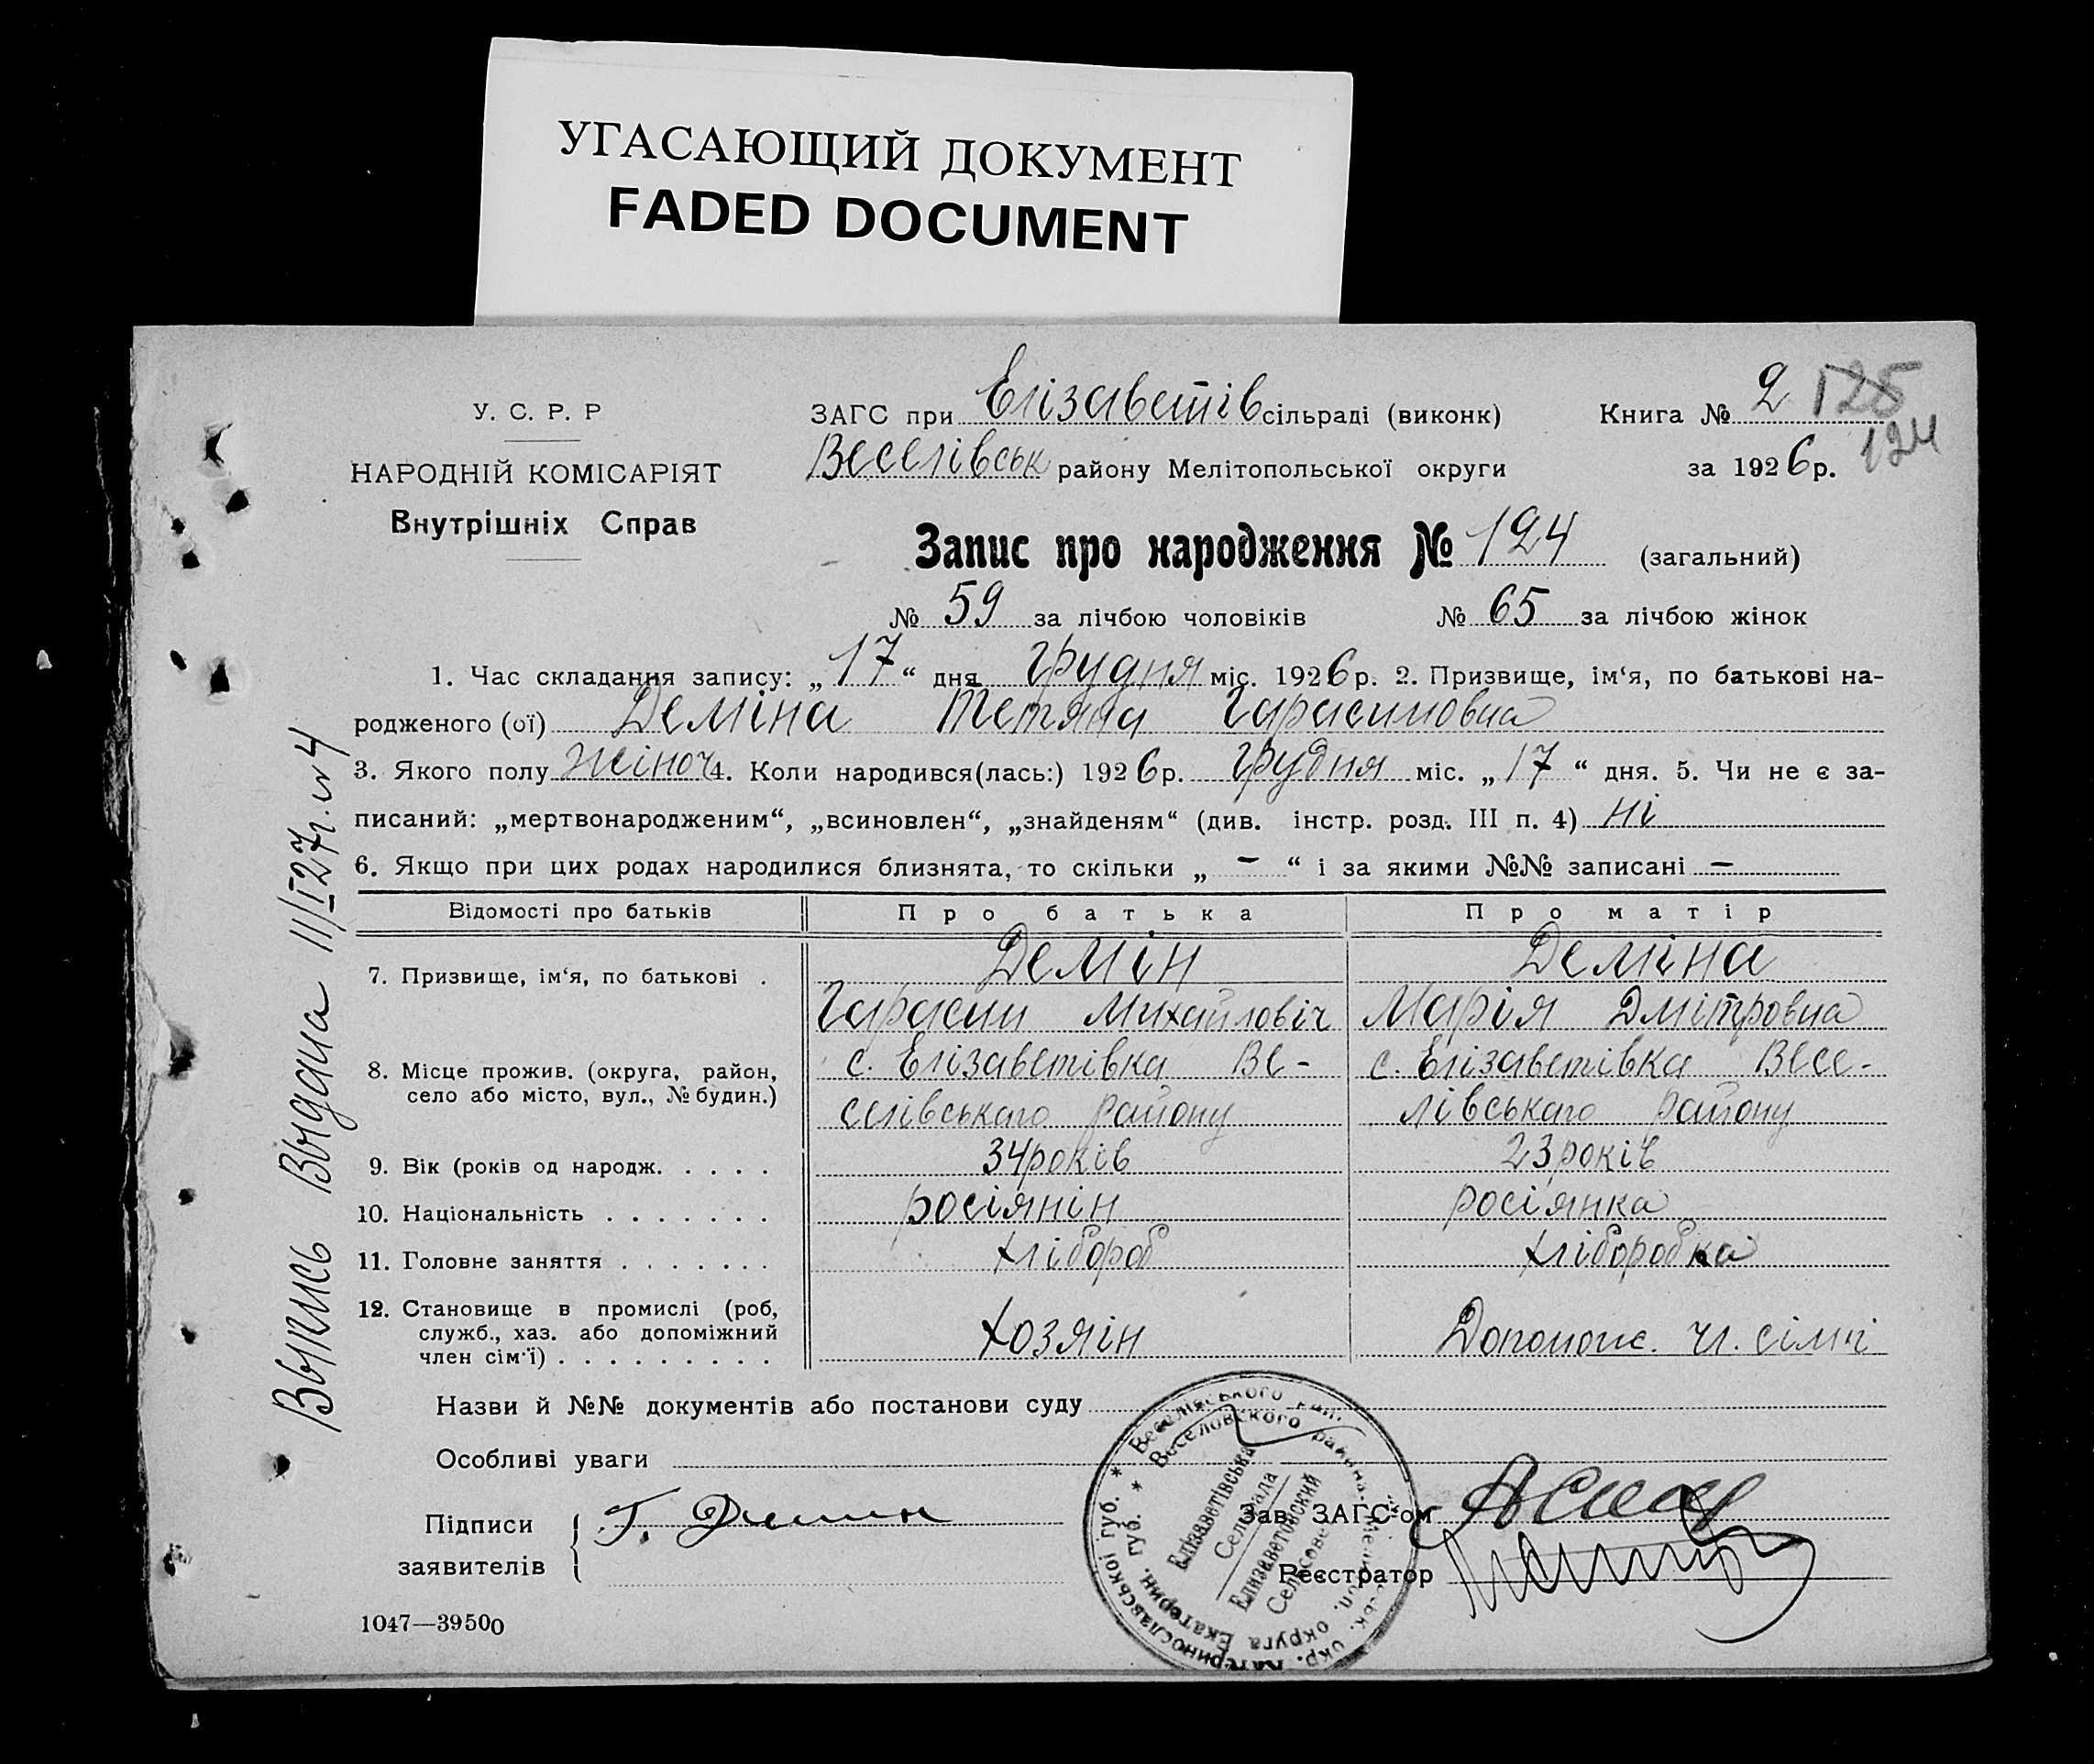 УГАСАЮЩИЙ ДОКУМЕНТ
FADED DOCUMENT
У. С. Р. Р
НАРОДНІЙ КОМІСАРІЯТ
Внутрішніх Справ
ЗАГС при Елізаветів сільраді (виконк)
Веселівськ району Мелітопольської округи
Книга № 2 125
124
за 1926 р.
Запис про народження № 124 (загальний)
№ 59 за лічбою чоловіків № 65 за лічбою жінок
1. Час складання запису: „17“ дня грудня міс. 1926 р. 2. Призвище, ім‘я, по батькові на-
родженого (ої) Деміна Тетяна Гарасимовна
3. Якого полу жіноч 4. Коли народився(лась:) 1926 р. грудня міс. „17“ дня. 5. Чи не є за-
писаний: „мертвонародженим“, „всиновлен“, „знайденям“ (див. інстр. розд. III п. 4) ні
6. Якщо при цих родах народилися близнята, то скільки „ — “ і за якими №№ записані —
Відомості про батьків Про батька Про матір
7. Призвище, ім‘я, по батькові . Демін Деміна
Гарасим Михайловіч Марія Дмітровна
8. Місце прожив. (округа, район, с. Елізаветівка Ве- с. Елізаветівка Весе-
село або місто, вул., № будин.) селівського району лівського району
9. Вік (років од народж. . . . . 34 років 23 років
10. Національність . . . . . . . росіянін росіянка
11. Головне заняття . . . . . . . хлібороб хліборобка
12. Становище в промислі (роб,
служб., хаз. або допоміжний
член сім‘ї) . . . . . . . . . хозяін Допомож. чл. сімї
Назви й №№ документів або постанови суду
Особливі уваги
Підписи
заявителів
Г. Демин
Зав. ЗАГС-ом
Реєстратор
1047—39500
Выпись Выдана 11/I 27 г. № 4
Веселівського
Веселовского района
Елізаветівська
Сельрада
Елизаветовский
Сельсове
Екатерин. губ.
округа